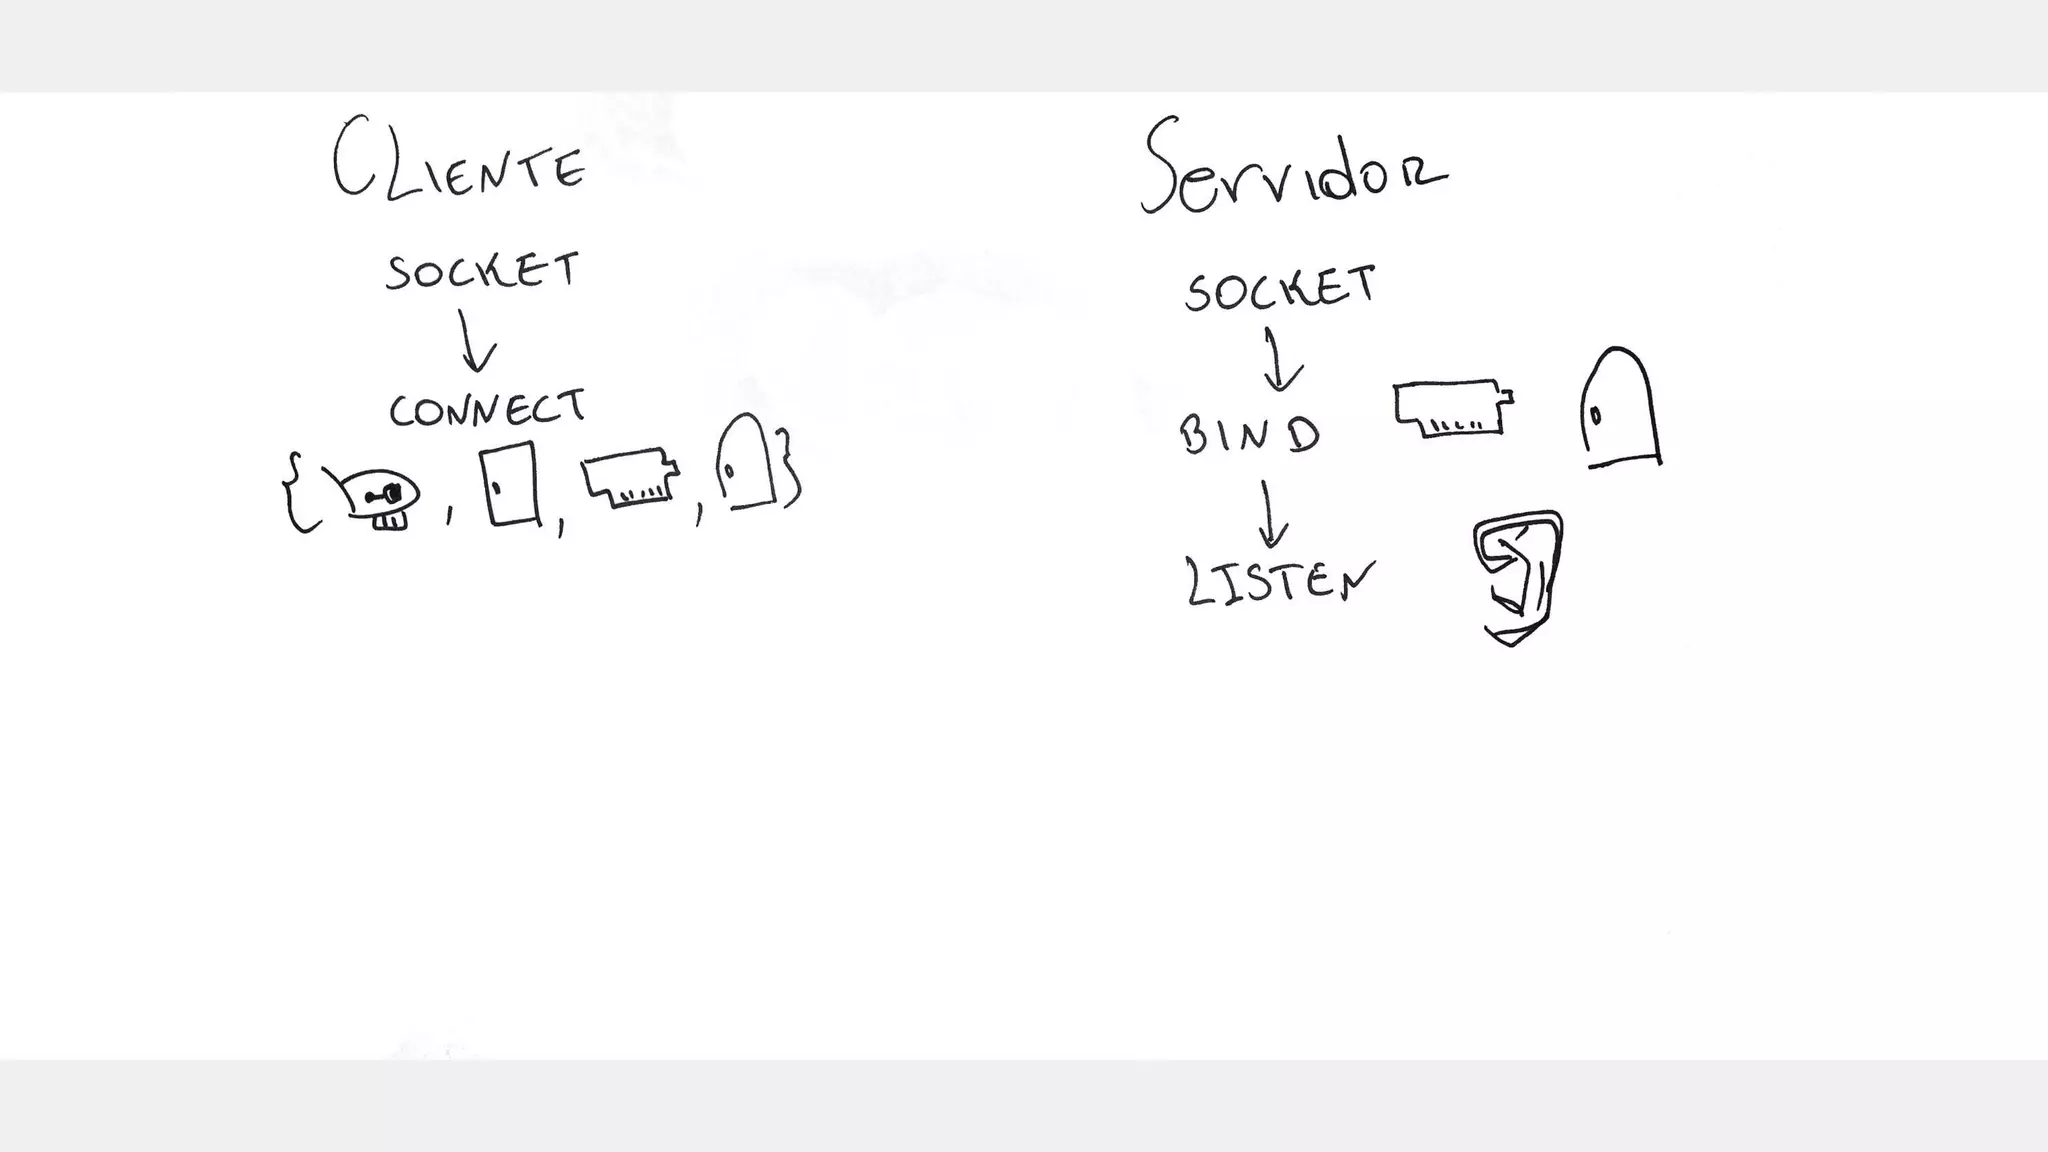 CLIENTE
SOCKET
CONNECT
{ , , , }
Servidor
SOCKET
BIND
LISTEN